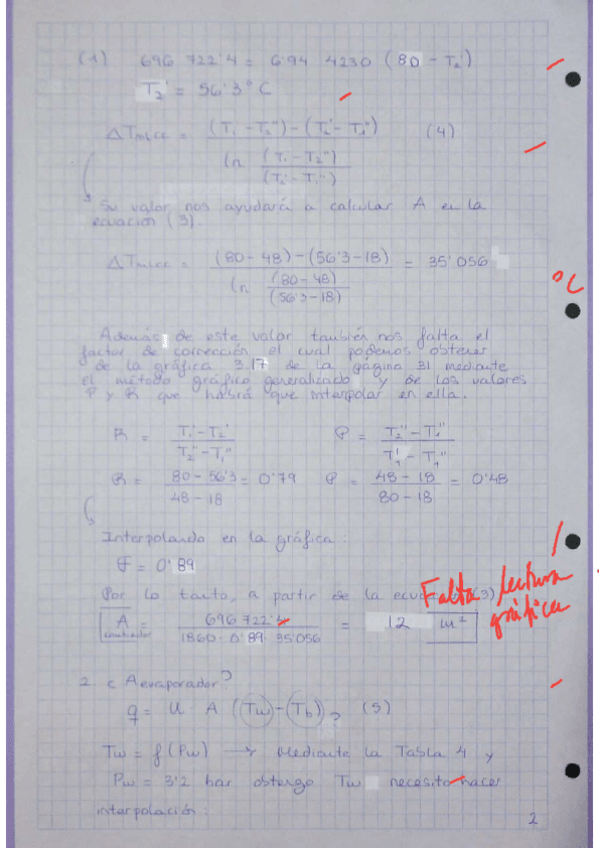 (1) 696 722'4 = 6'94 4230 (80 - T₂')
T₂' = 56'3 °C
ΔTmlcc = (T₁' - T₂'') - (T₂' - T₁'') / ln (T₁' - T₂'') / (T₂' - T₁'') (4)
Su valor nos ayudará a calcular A en la
ecuación (3).
ΔTmlcc = (80 - 48) - (56'3 - 18) / ln (80 - 48) / (56'3 - 18) = 35'056 °C
Además de este valor también nos falta el
factor de corrección el cual podemos obtener
de la gráfica 3.17 de la página 31 mediante
el método gráfico generalizado y de los valores
P y R que habrá que interpolar en ella.
R = T₁' - T₂' / T₂'' - T₁'' P = T₂'' - T₁'' / T₁' - T₁''
R = 80 - 56'3 / 48 - 18 = 0'79 P = 48 - 18 / 80 - 18 = 0'48
Interpolando en la gráfica:
F = 0'89
Falta lectura
gráfica
Por lo tanto, a partir de la ecua (3)
A = 696 722'4 / 1860 · 0'89 · 35'056 = 12 m²
2. ¿ Aevaporador?
q = U · A (Tw - Tb)? (5)
Tw = f (Pw) → Mediante la Tabla 4 y
Pw = 3'2 bar obtengo Tw necesito hacer
interpolación:
2